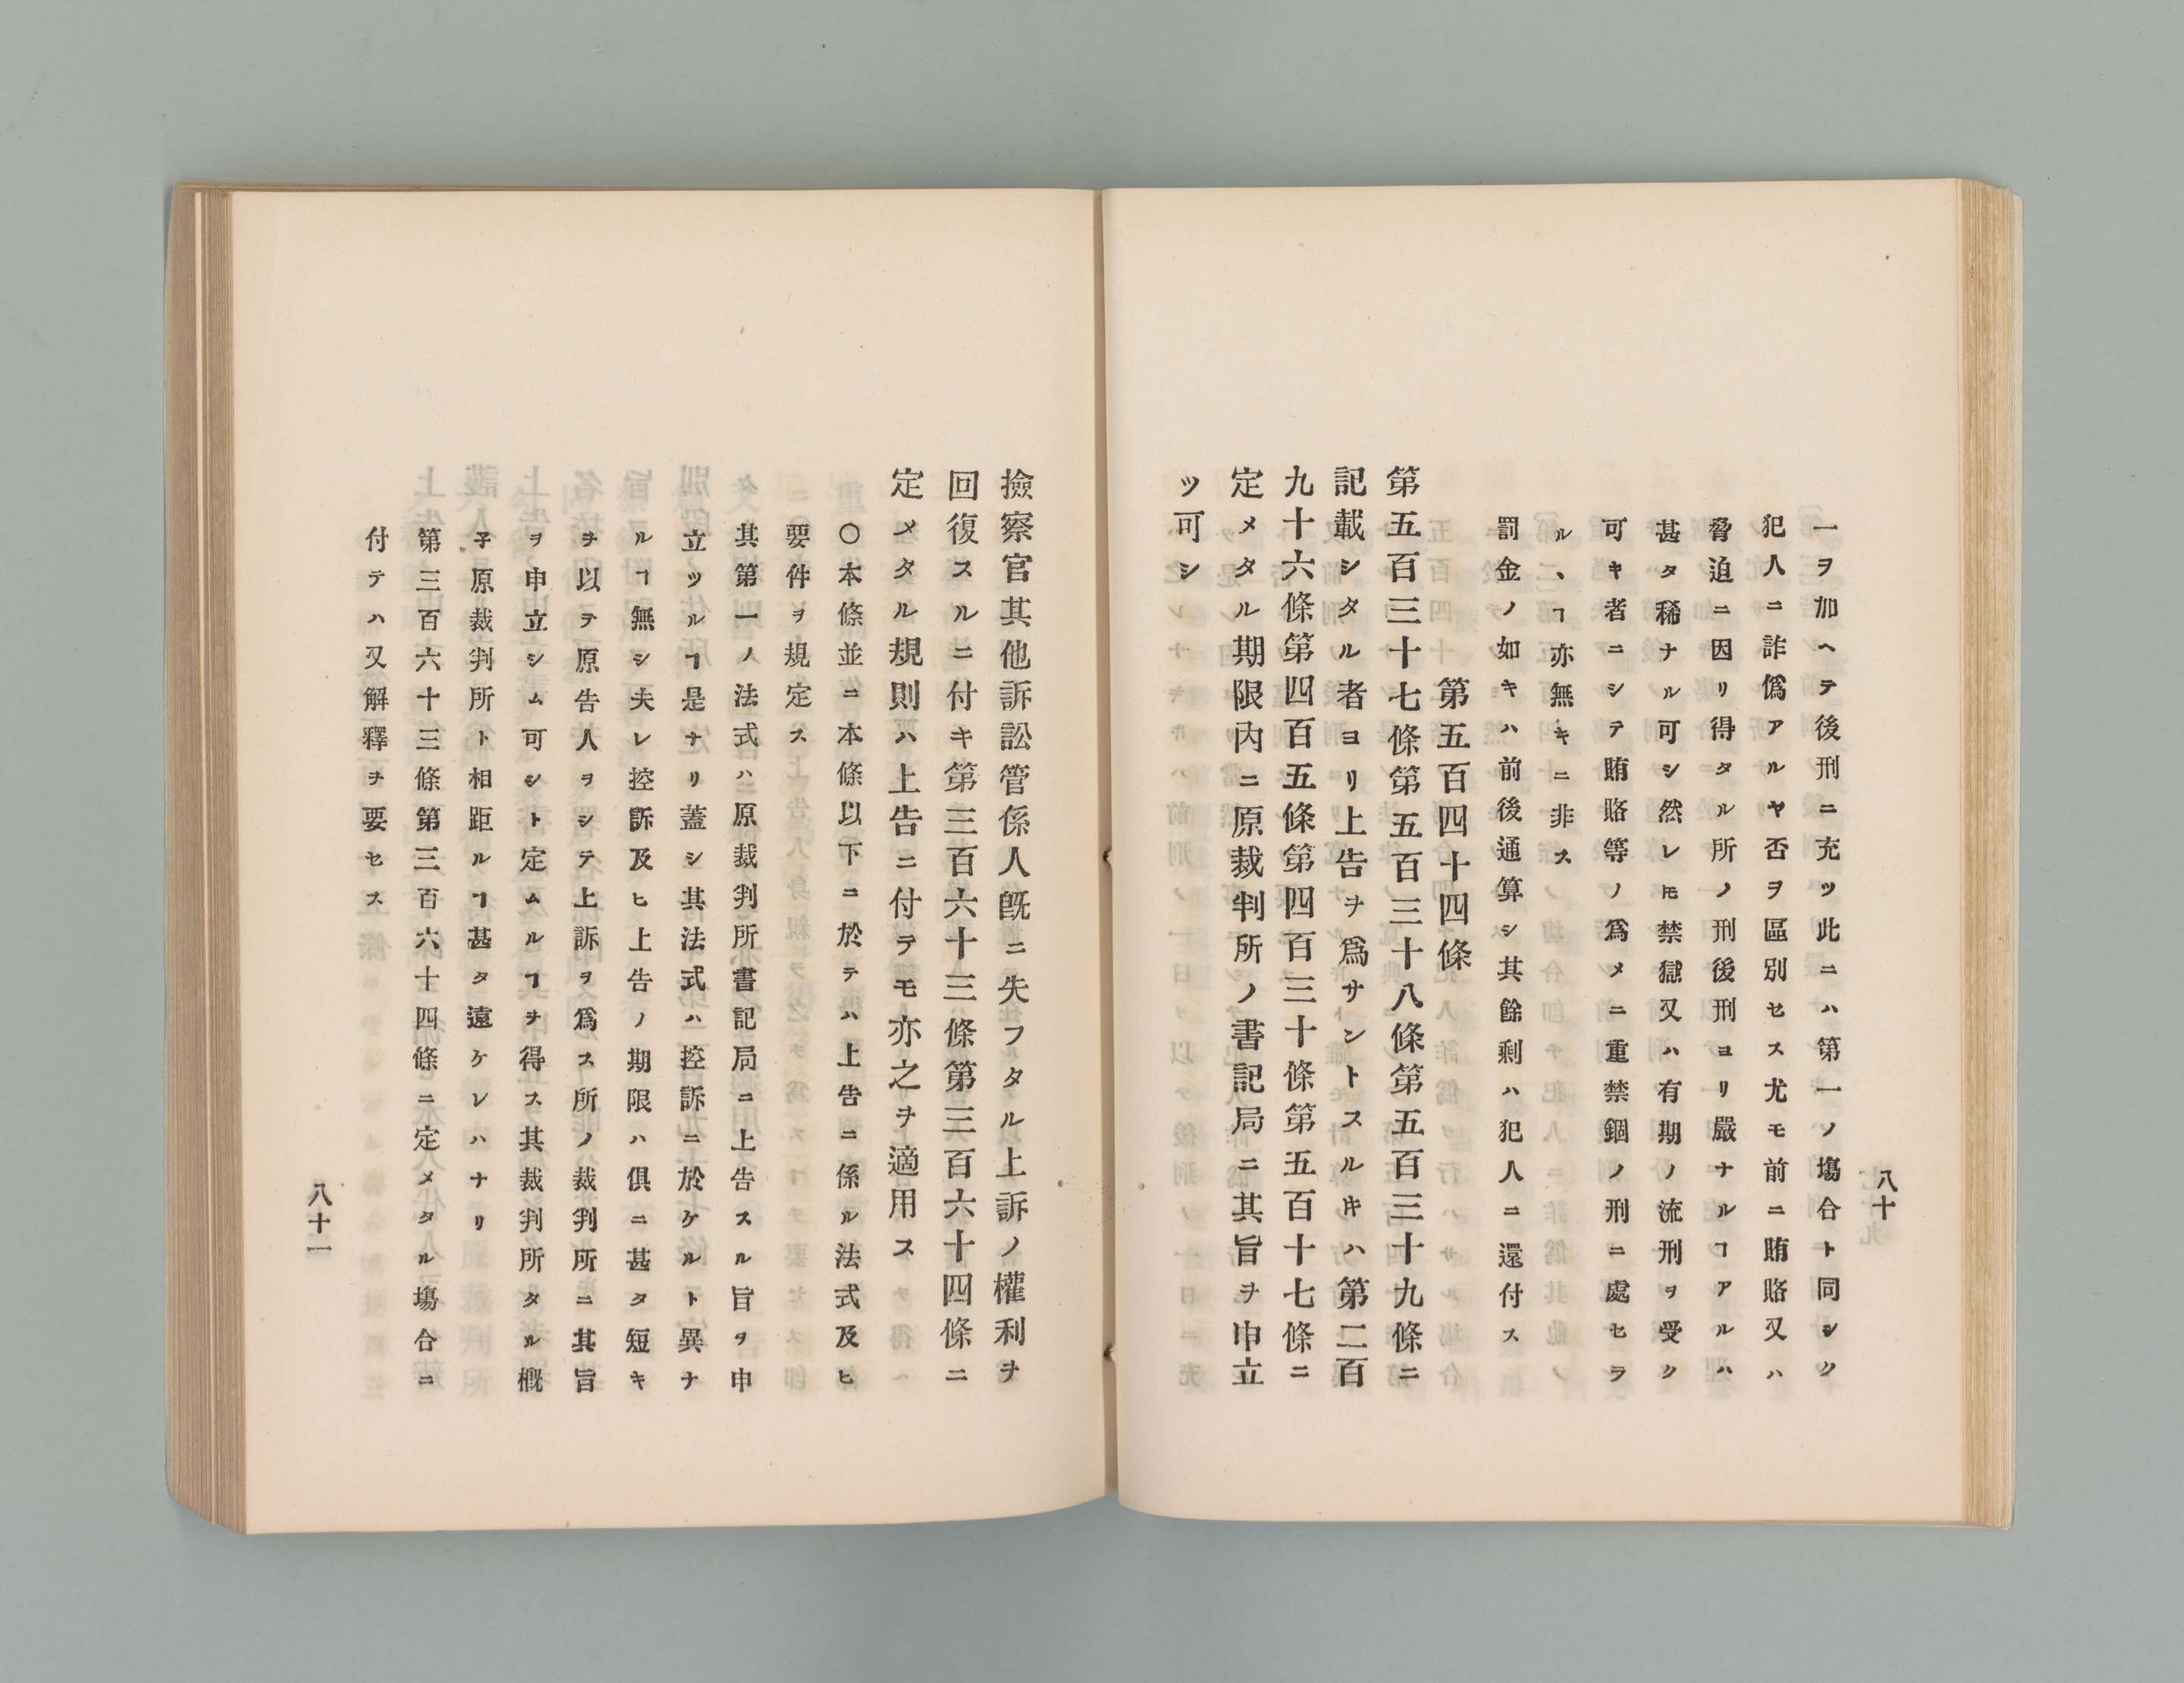 八十
一ヲ加ヘテ後刑ニ充ツ此ニハ第一ノ塲合ト同シク
犯人ニ詐僞アルヤ否ヲ區別セス尤モ前ニ賄賂又ハ
脅迫ニ因リ得タル所ノ刑後刑ヨリ嚴ナルヿアルハ
甚タ稀ナル可シ然レ𪜈禁獄又ハ有期ノ流刑ヲ受ク
可キ者ニシテ賄賂等ノ爲メニ重禁錮ノ刑ニ處セラ
ルヽヿ亦無キニ非ス
罰金ノ如キハ前後通算シ其餘剩ハ犯人ニ還付ス
第五百四十四條
第五百三十七條第五百三十八條第五百三十九條ニ
記載シタル者ヨリ上告ヲ爲サントスルキハ第二百
九十六條第四百五條第四百三十條第五百十七條ニ
定メタル期限內ニ原裁判所ノ書記局ニ其旨ヲ申立
ツ可シ
撿察官其他訴訟管係人旣ニ失フタル上訴ノ權利ヲ
回復スルニ付キ第三百六十三條第三百六十四條ニ
定メタル規則ハ上告ニ付テモ亦之ヲ適用ス
〇本條並ニ本條以下ニ於テハ上告ニ係ル法式及ヒ
要件ヲ規定ス
其第一ノ法式ハ原裁判所書記局ニ上告スル旨ヲ申
立ツルヿ是ナリ蓋シ其法式ハ控訴ニ於ケルト異ナ
ルヿ無シ夫レ控訴及ヒ上告ノ期限ハ俱ニ甚タ短キ
ヲ以テ原告人ヲシテ上訴ヲ爲ス所ノ裁判所ニ其旨
ヲ申立シム可シト定ムルヿヲ得ス其裁判所タル槪
子原裁判所ト相距ルヿ甚タ遠ケレハナリ
第三百六十三條第三百六十四條ニ定メタル塲合ニ
付テハ又解釋ヲ要セス
八十一